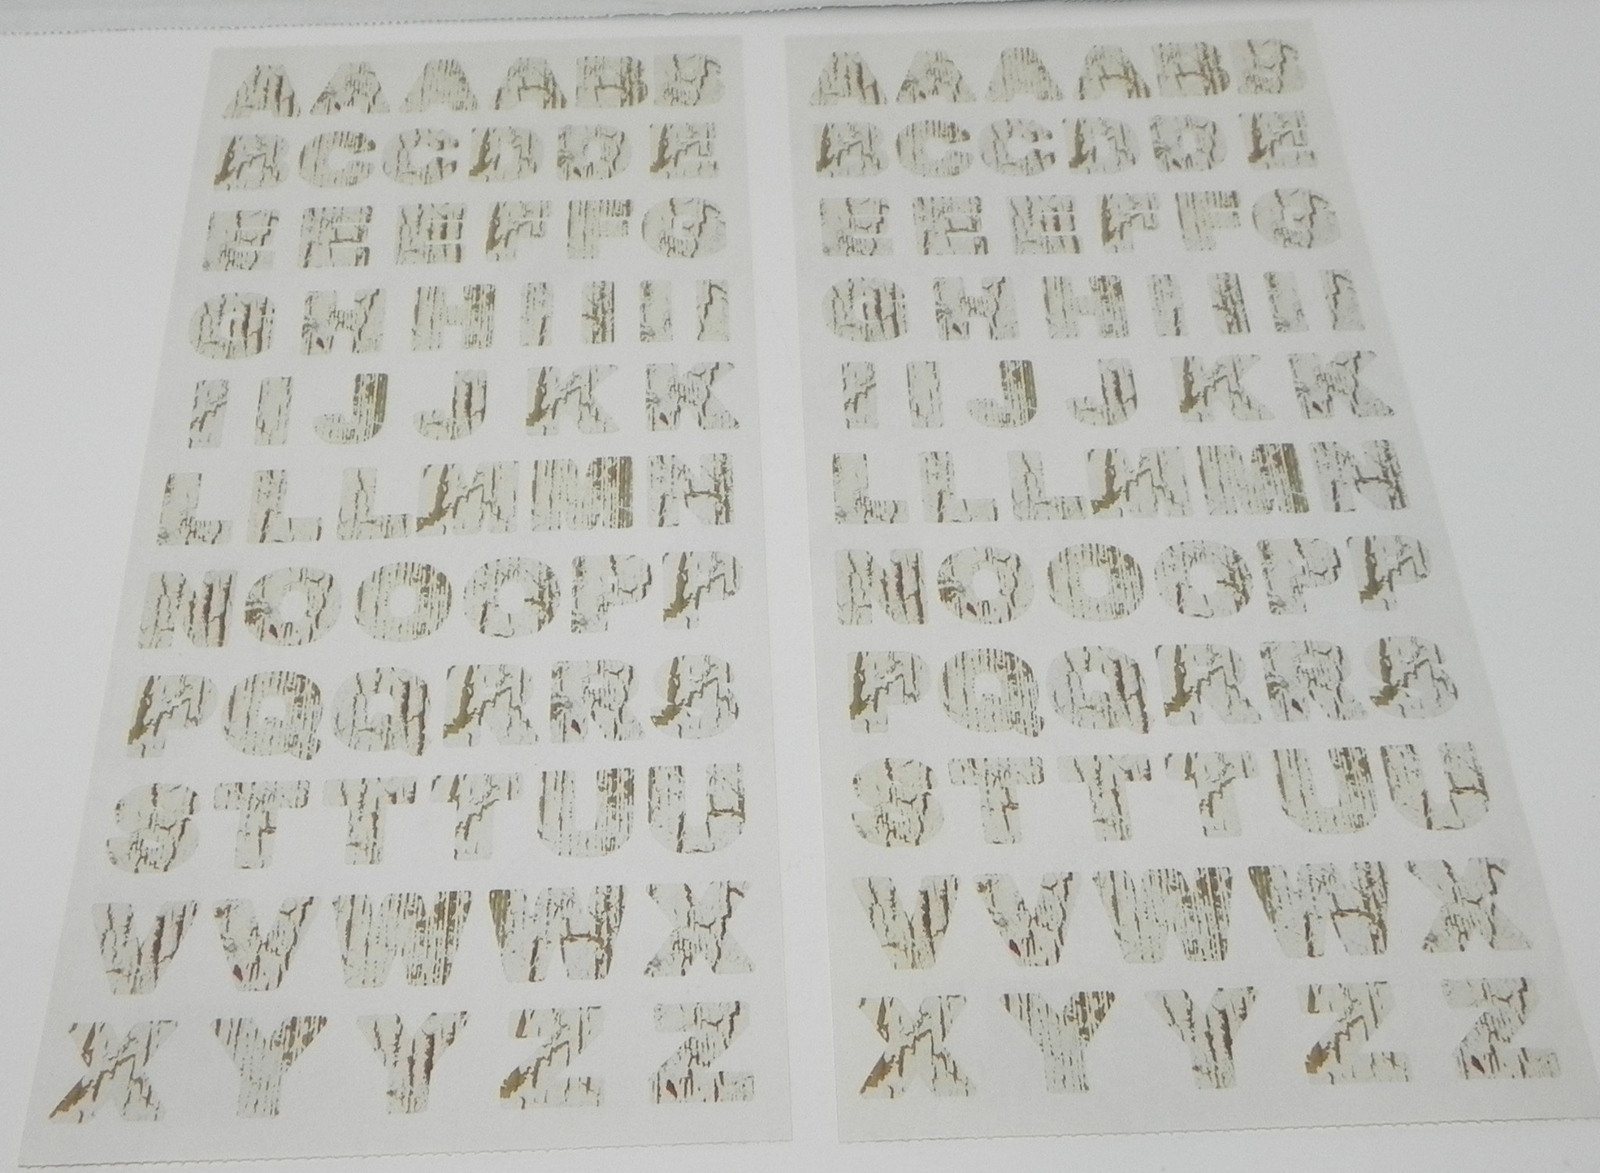 A A A A B B
B C C D D E
E E E F F G
G H H I I I I
I I J J K K
L L L M M N
N O O O P P
P Q Q R R S
S T T T U U
V V W W X
X Y Y Z Z
A A A A B B
B C C D D E
E E E F F G
G H H I I I I
I I J J K K
L L L M M N
N O O O P P
P Q Q R R S
S T T T U U
V V W W X
X Y Y Z Z